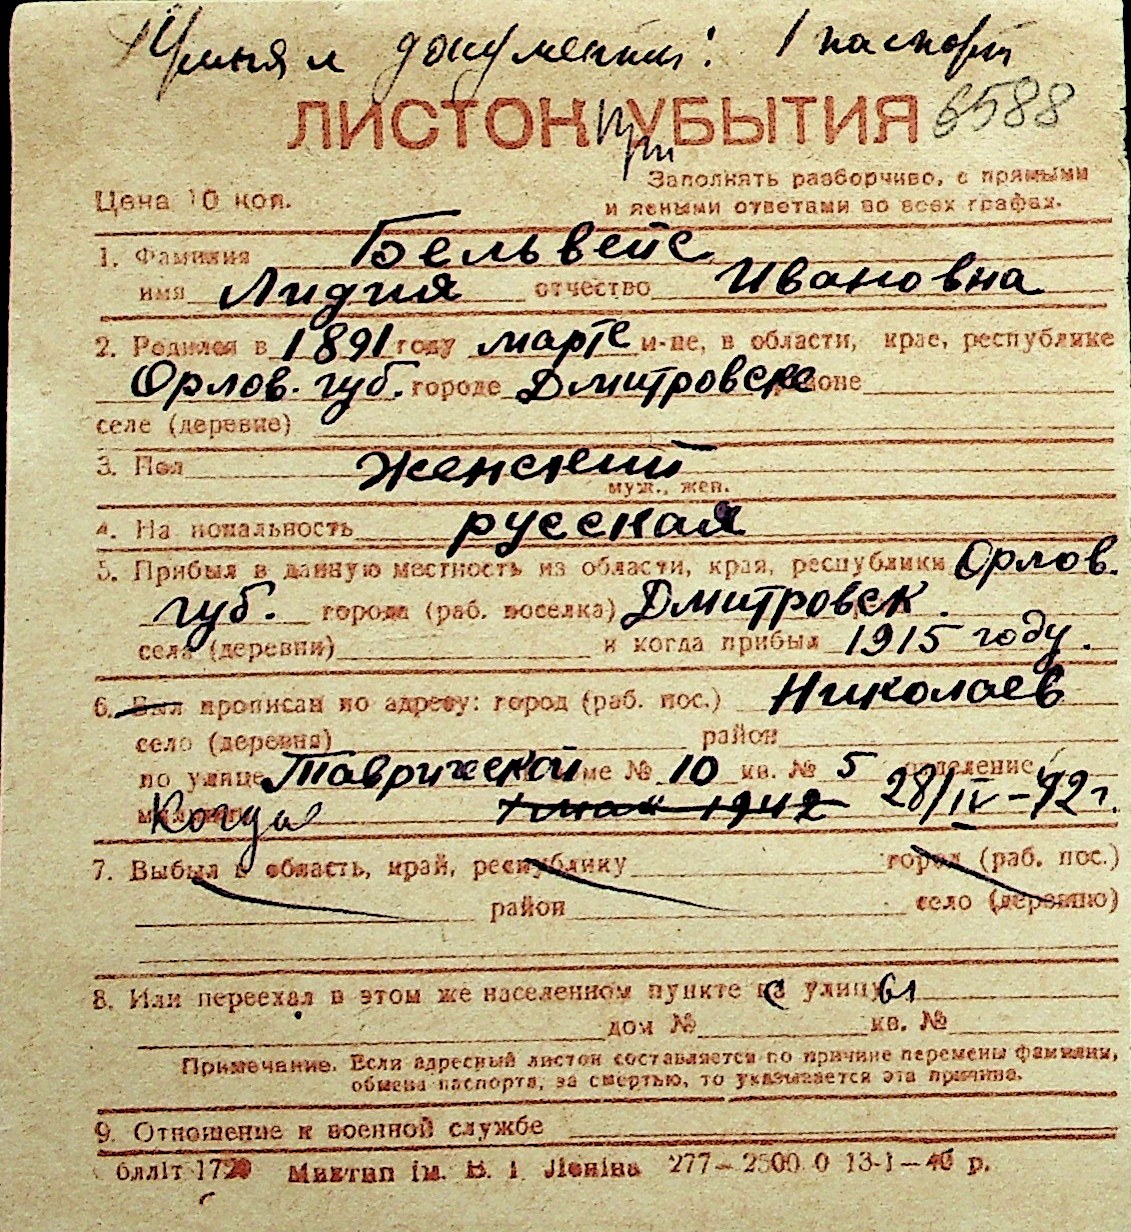 Принял документы: 1 паспорт
ЛИСТОК при УБЫТИЯ 6588
Заполнять разборчиво, с прямыми
Цена 10 коп. и ясными ответами во всех графах.
1. Фамилия Бельвейс
имя Лидия отчество Ивановна
2. Родился в 1891 году марте м-це, в области, крае, республике
Орлов. губ. городе Дмитровске районе
селе (деревне)
3. Пол Женский
муж., жен.
4. Национальность русская
5. Прибыл в данную местность из области, края, республики Орлов.
губ. города (раб. поселка) Дмитровск.
села (деревни) и когда прибыл 1915 году.
6. Был прописан по адресу: город (раб. пос.) Николаев
село (деревня) район
по улице Таврической доме № 10 кв. № 5 отделение
милиции Когда 1942 28/IV-42г.
7. Выбыл в область, край, республику город (раб. пос.)
район село (деревню)
8. Или переехал в этом же населенном пункте с улицы
дом № кв. №
Примечание. Если адресный листок составляется по причине перемены фамилии,
обмена паспорта, за смертью, то указывается эта причина.
9. Отношение к военной службе
блліт 1720 Миктип ім. В. І. Леніна 277-2500 0 13-1-40 р.